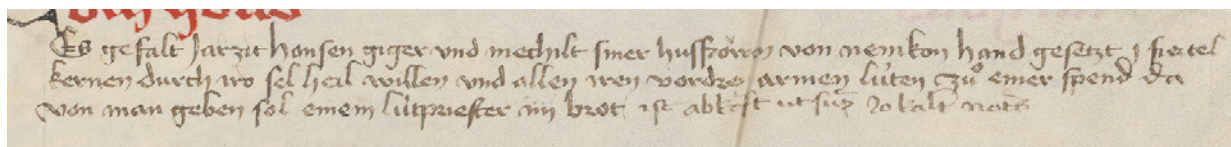 Es gefalt Jarzit hansen giger vnd mechilt siner hussfrowen von nenikon hand gesetzt j fiertel
kernen durch iro sel heil willen vnd allen iren vordren armen lüten zuͦ einer spend da
von man geben sol einem lütpriester iiij brot ist abkoͤst ut sup